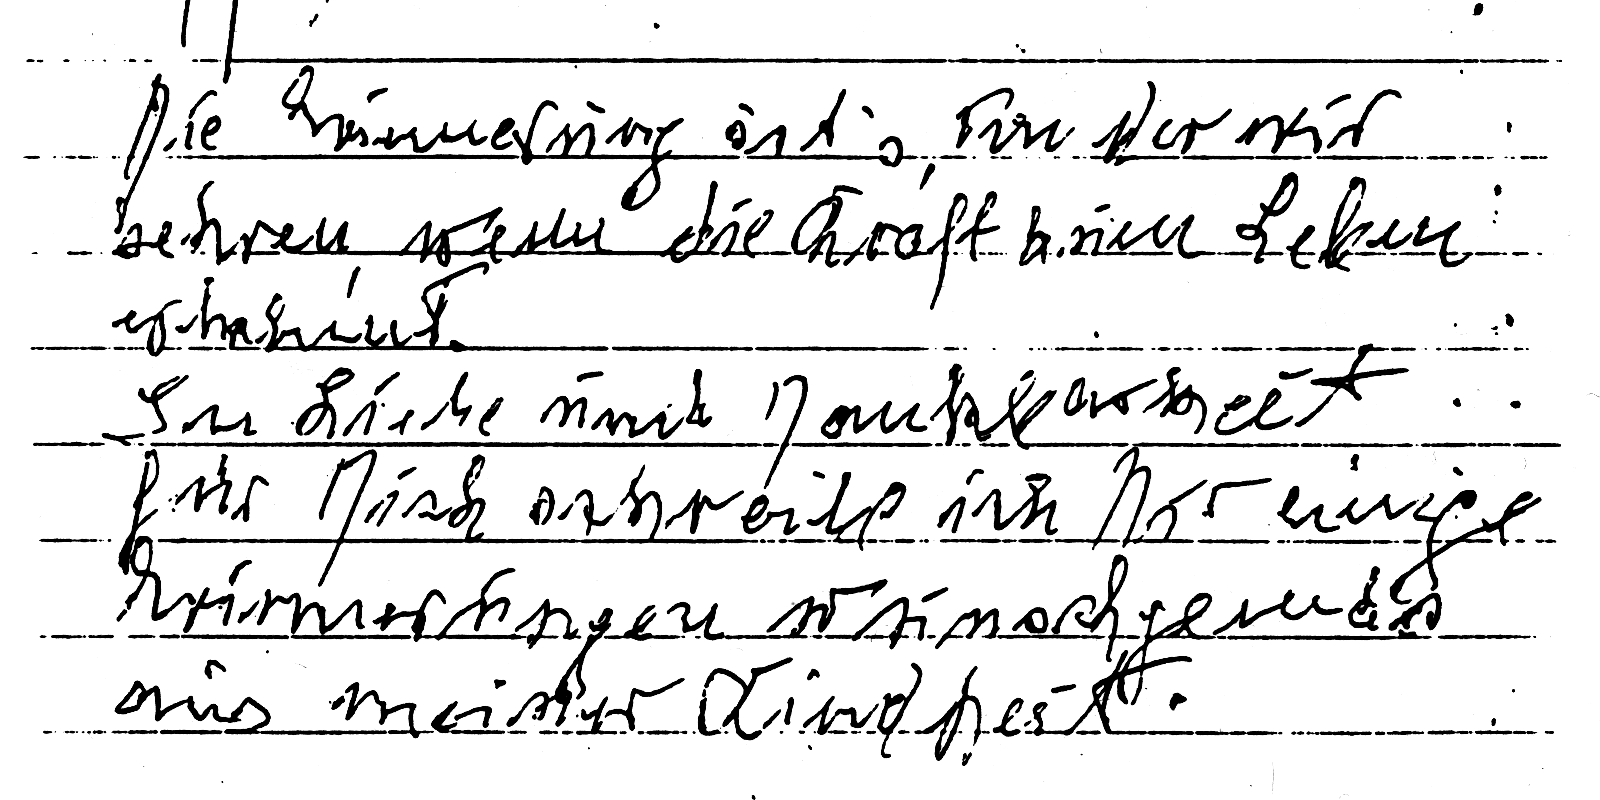 Die Erinnerung ist's, von der wir
zehren wenn die Kraft zum Leben
schwindet.
In Liebe und Dankbarkeit
für Dich schreibe ich Dir einige
Erinnerungen
aus meiner Kindheit.